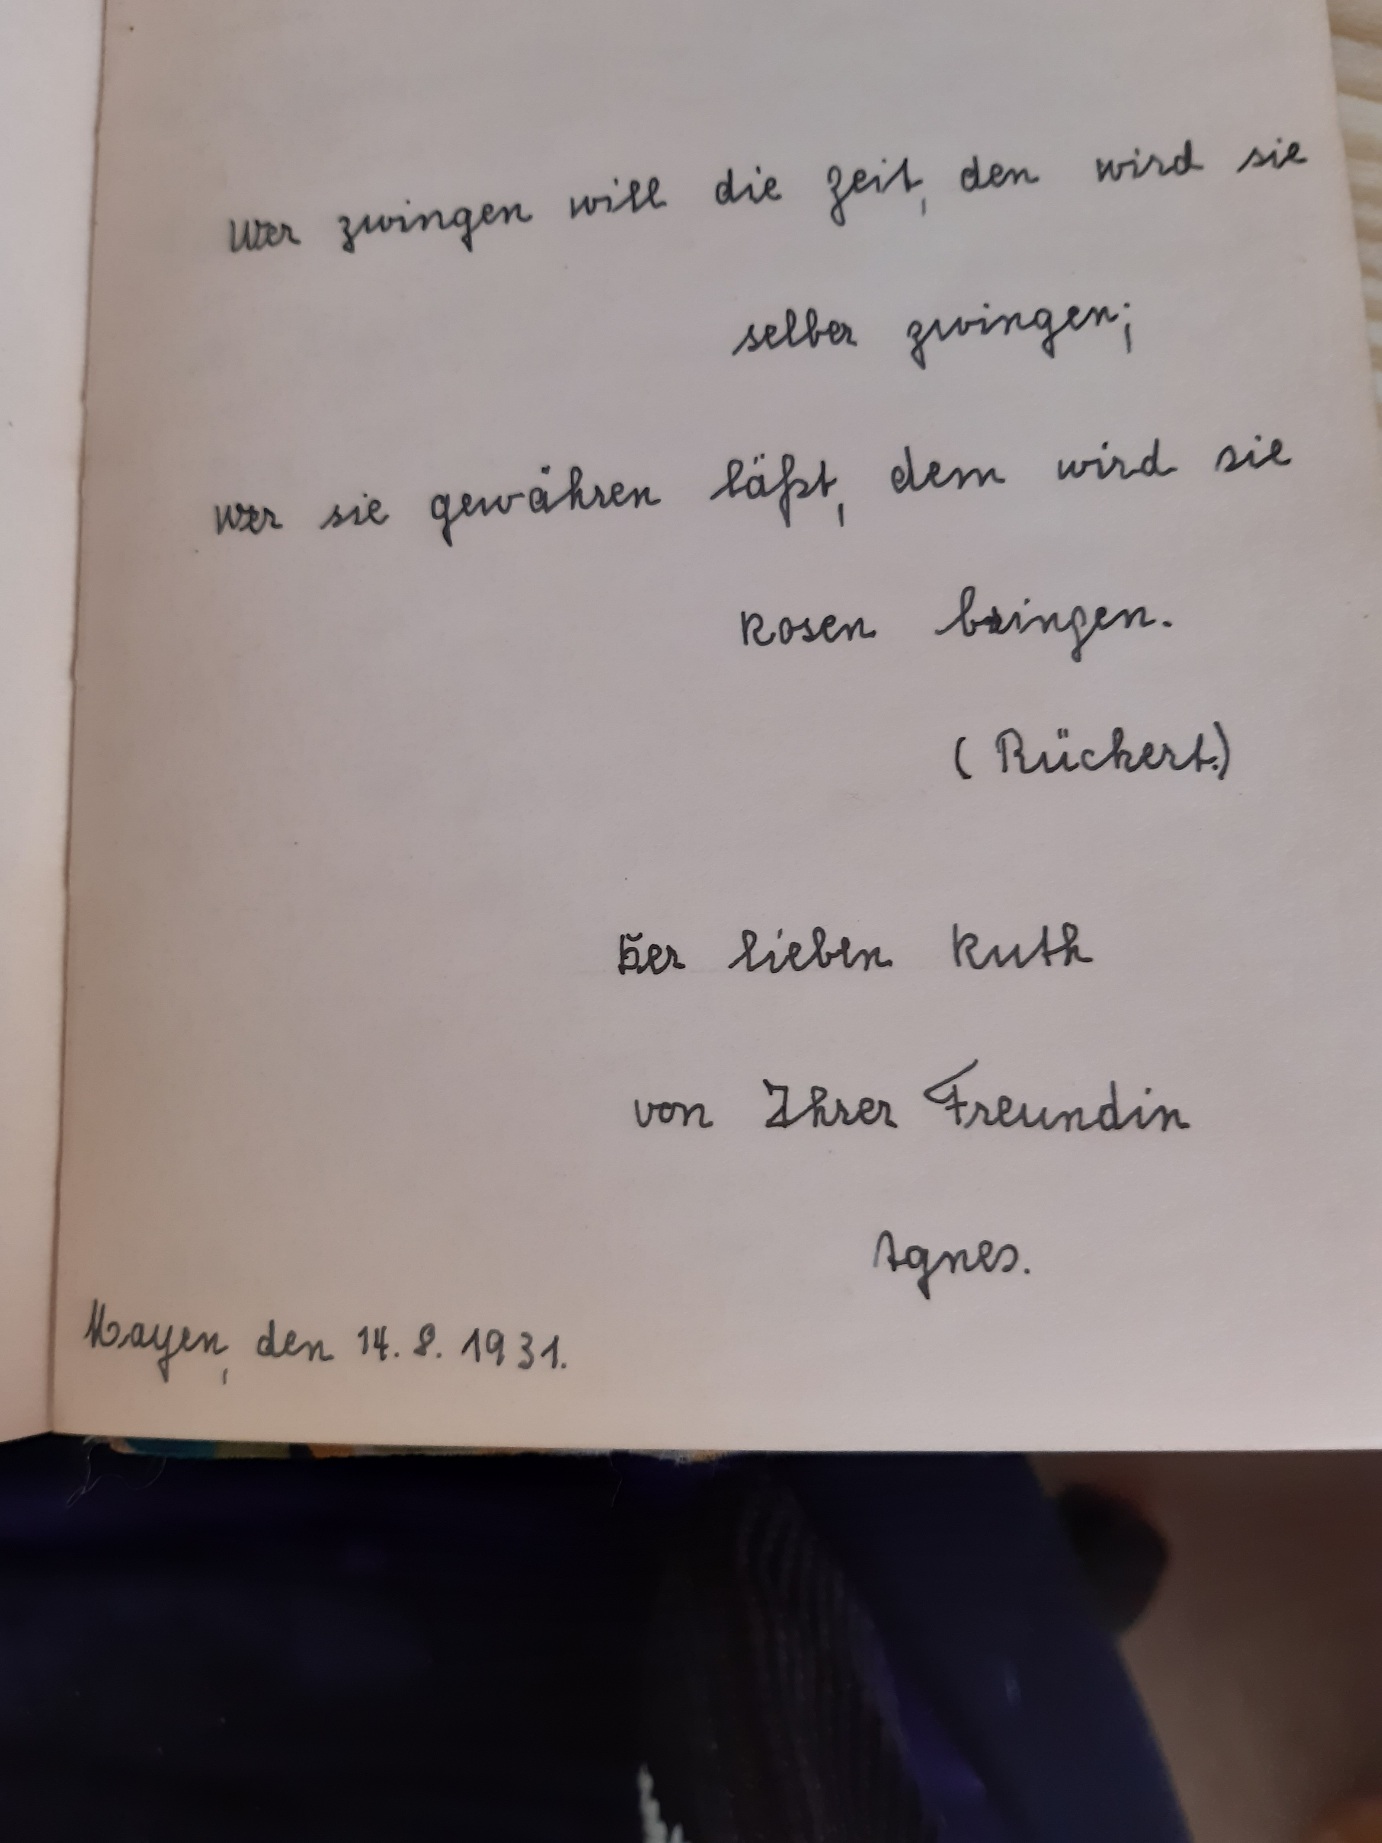 Wer zwingen will die Zeit, den wird sie
selber zwingen;
Wer sie gewähren läßt, dem wird sie
Rosen bringen.
(Rückert.)
Der lieben Ruth
von Ihrer Freundin
Agnes.
Mayen, den 14. 8. 1931.